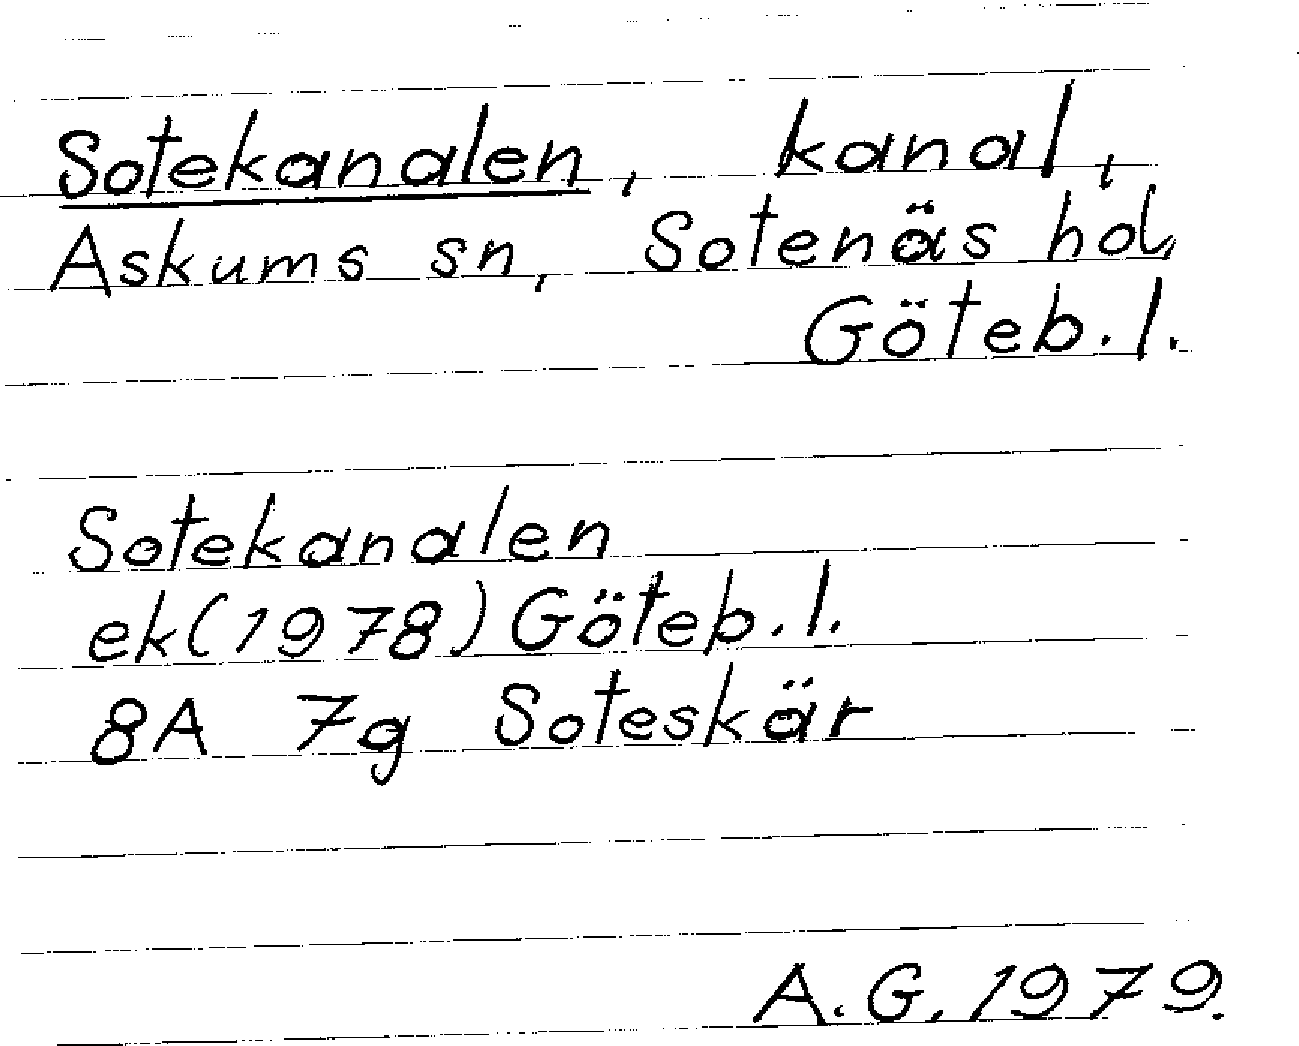 Sotekanalen, kanal,
Askums sn, Sotenäs hd,
Göteb. l.
Sotekanalen
ek (1978) Göteb. l.
8A 7g Soteskär
A. G. 1979.